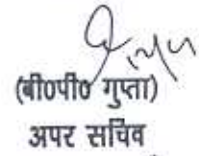 (बी0पी0 गुप्ता)
अपर सचिव